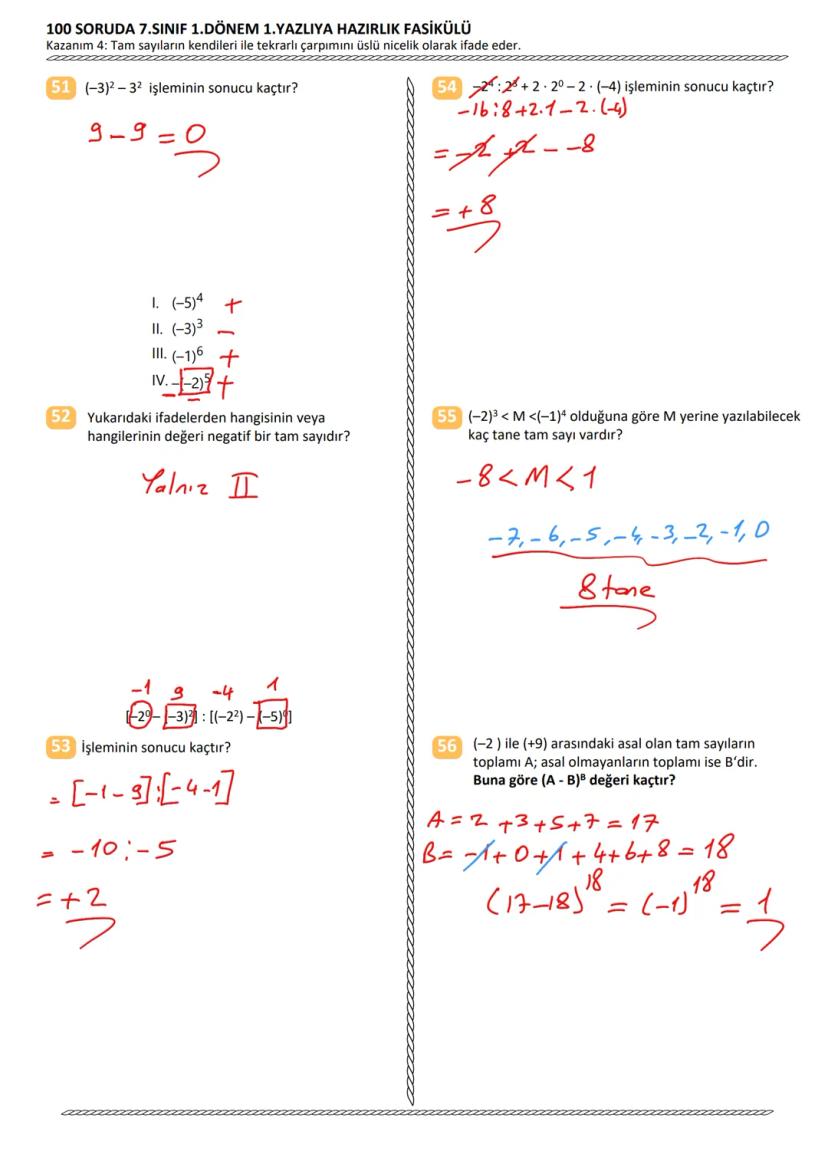 100 SORUDA 7.SINIF 1.DÖNEM 1.YAZLIYA HAZIRLIK FASİKÜLÜ
Kazanım 4: Tam sayıların kendileri ile tekrarlı çarpımını üslü nicelik olarak ifade eder.
51 (–3)² – 3² işleminin sonucu kaçtır?
9 – 9 = 0
I. (–5)⁴ +
II. (–3)³ –
III. (–1)⁶ +
IV. –(–2)⁵ +
52 Yukarıdaki ifadelerden hangisinin veya
hangilerinin değeri negatif bir tam sayıdır?
Yalnız II
–1 9 –4 1
[–2⁰– (–3)²] : [(–2²) – (–5)⁰]
53 İşleminin sonucu kaçtır?
= [–1 – 9] : [–4 –1]
= –10 : –5
= +2
54 –2⁴ : 2³ + 2 · 2⁰ – 2 · (–4) işleminin sonucu kaçtır?
–16 : 8 + 2.1 – 2.(–4)
= –2 +2 – –8
= +8
55 (–2)³ < M <(–1)⁴ olduğuna göre M yerine yazılabilecek
kaç tane tam sayı vardır?
–8 < M < 1
–7, –6, –5, –4, –3, –2, –1, 0
8 tane
56 (–2 ) ile (+9) arasındaki asal olan tam sayıların
toplamı A; asal olmayanların toplamı ise B’dir.
Buna göre (A - B)ᴮ değeri kaçtır?
A = 2 +3+5+7 = 17
B= –1+ 0 +1 + 4+6+8 = 18
(17–18)¹⁸ = (–1)¹⁸ = 1